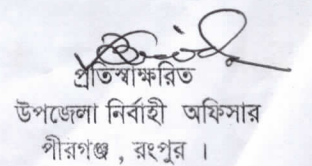 প্রতিস্বাক্ষরিত
উপজেলা নির্বাহী অফিসার
পীরগঞ্জ , রংপুর ।